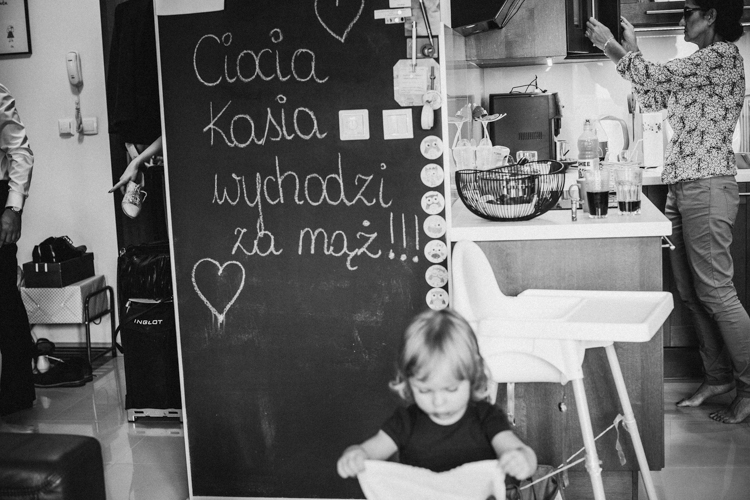 Ciocia
Kasia
wychodzi
za mąż!!!
INGLOT